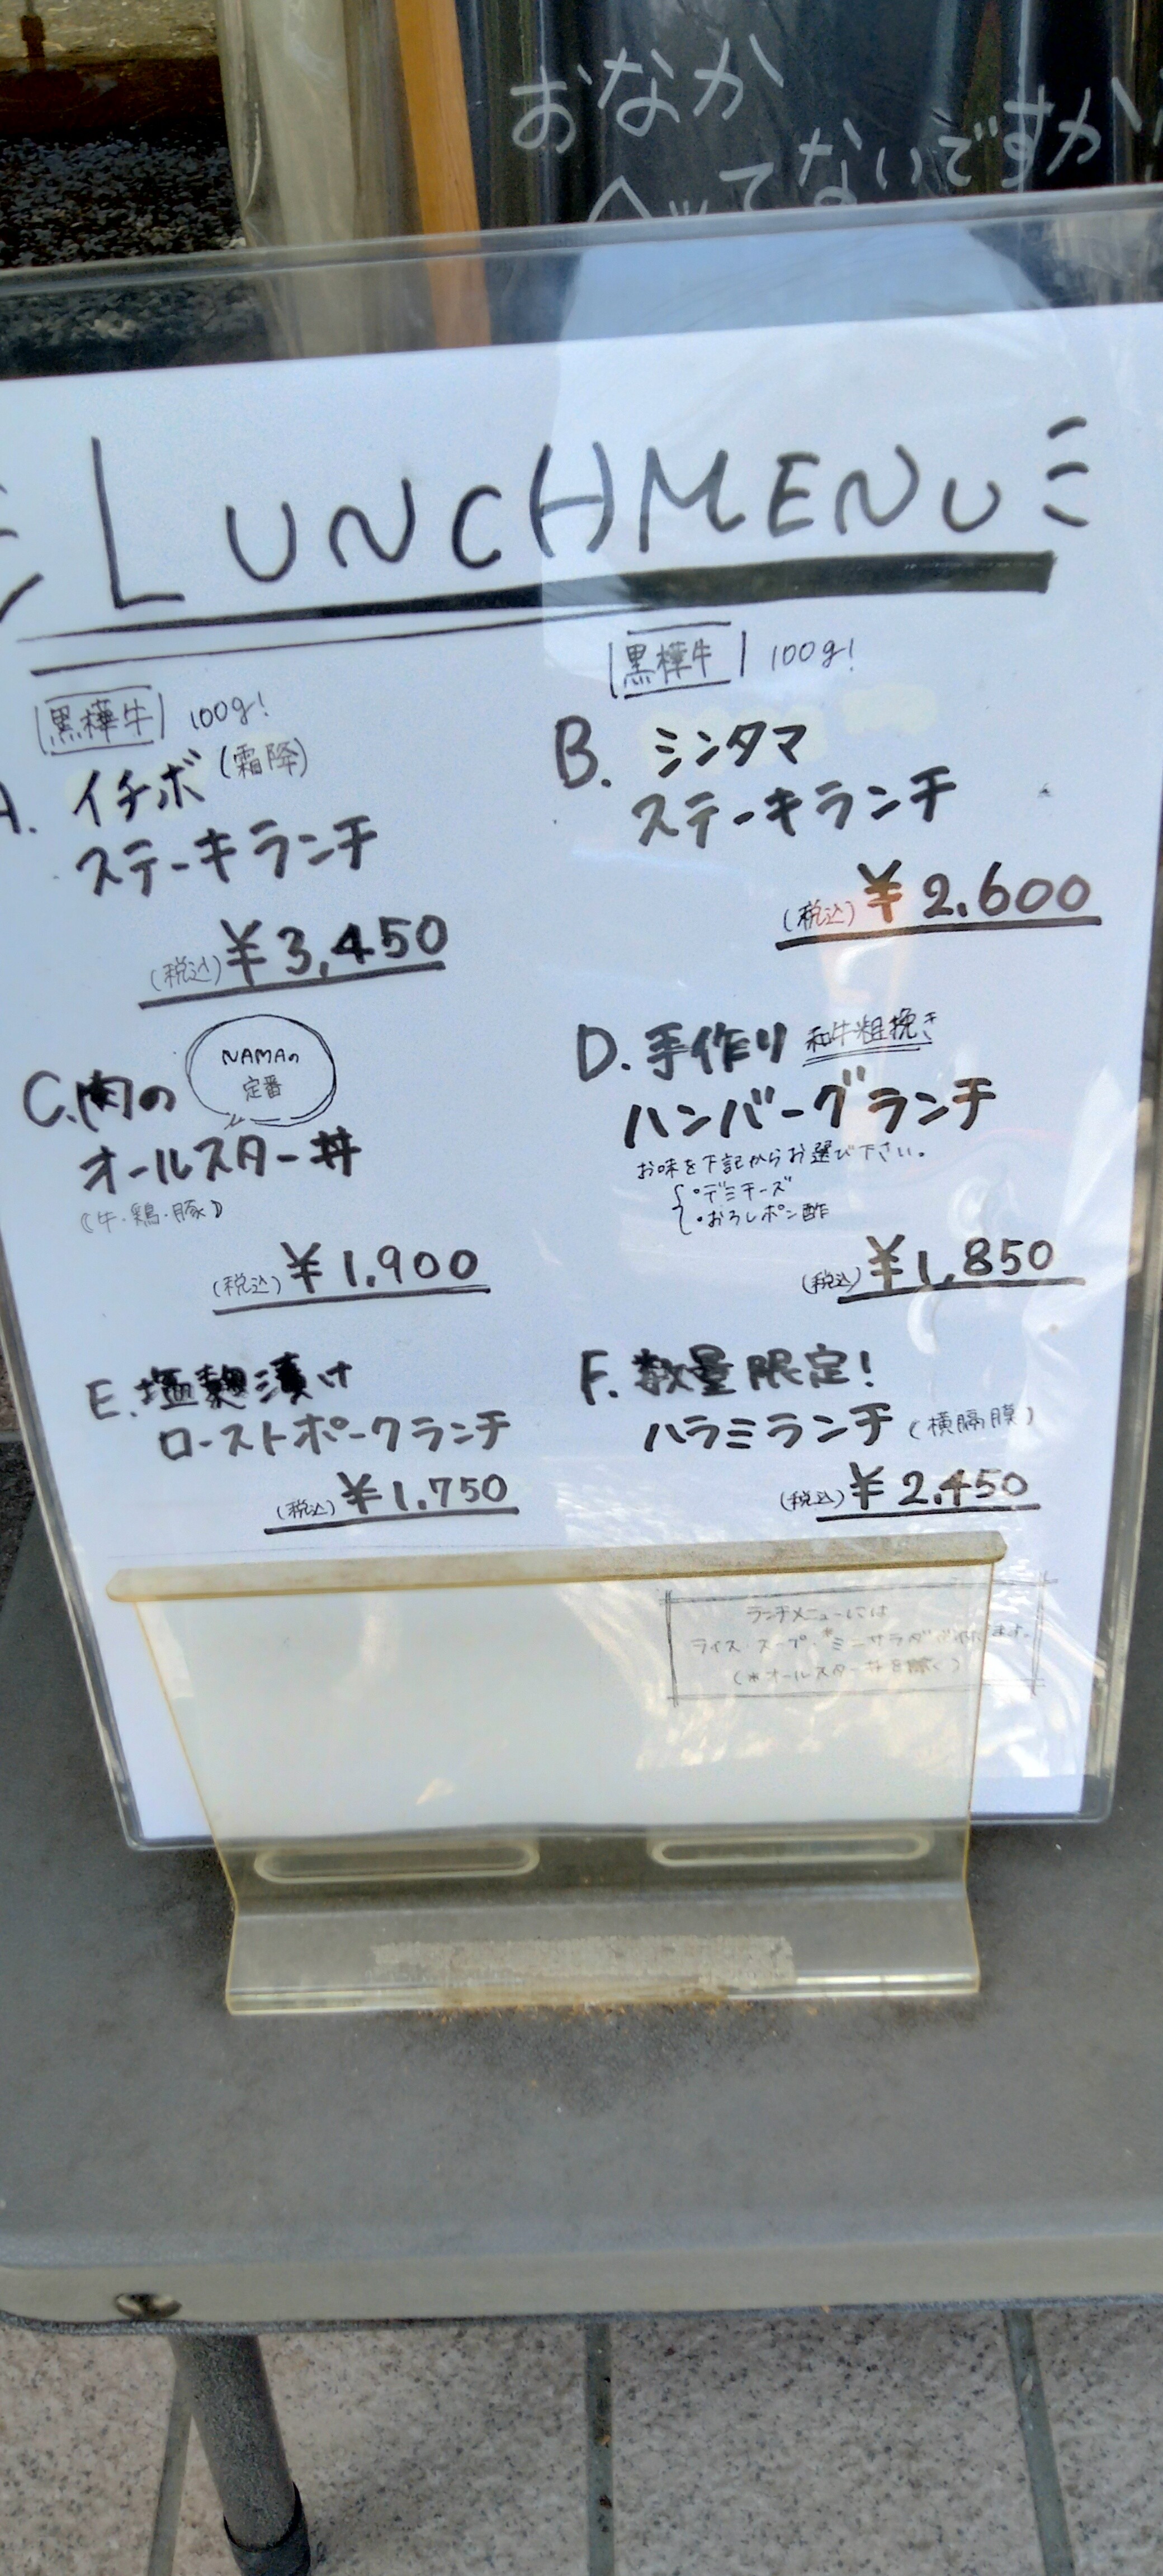 おなか
へってないですか
LUNCH MENU
黒樺牛 100g!
A. イチボ (霜降)
ステーキランチ
(税込) ¥3,450
黒樺牛 100g!
B. シンタマ
ステーキランチ
(税込) ¥2.600
NAMAの
定番
C. 肉の
オールスター丼
(牛・鶏・豚)
(税込) ¥1.900
D. 手作り 和牛粗挽き
ハンバーグランチ
お味を下記からお選び下さい。
・デミチーズ
・おろしポン酢
(税込) ¥1,850
E. 塩麹漬け
ローストポークランチ
(税込) ¥1.750
F. 数量限定!
ハラミランチ (横隔膜)
(税込) ¥2.450
ランチメニューには
ライス・スープ・*ミニサラダ
(*オールスター丼を除く)